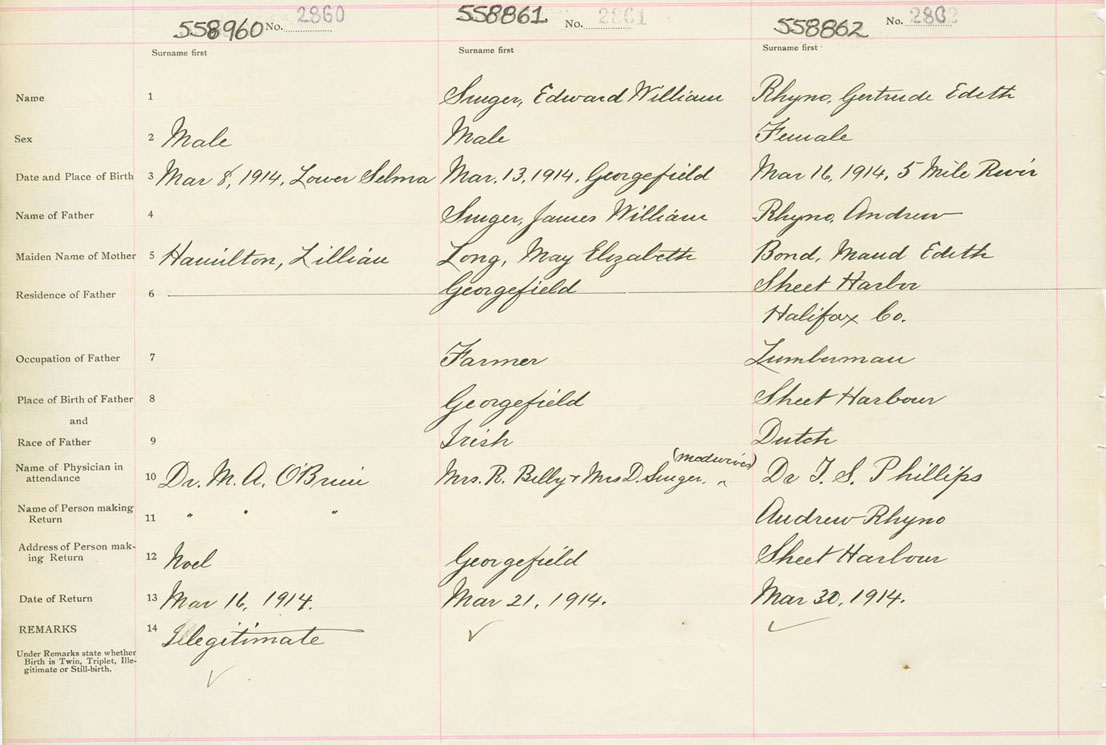 558960 No. 2860 558861 No. 2861 558862 No. 2862
Surname first Surname first Surname first
Name 1 Singer, Edward William Rhyno, Gertrude Edith
Sex 2 Male Male Female
Date and Place of Birth 3 Mar 8, 1914, Lower Selma Mar. 13, 1914, Georgefield Mar 16, 1914, 5 Mile River
Name of Father 4 Singer, James William Rhyno, Andrew
Maiden Name of Mother 5 Hamilton, Lillian Long, May Elizabeth Bond, Maud Edith
Residence of Father 6 Georgefield Sheet Harbor
Halifax Co.
Occupation of Father 7 Farmer Lumberman
Place of Birth of Father 8 Georgefield Sheet Harbour
and
Race of Father 9 Irish Dutch
(midwives)
Name of Physician in
attendance 10 Dr. M. A. O'Brien Mrs. R. Billy + Mrs D. Singer. Dr T. S. Phillips
Name of Person making
Return 11 " " " Andrew Rhyno
Address of Person mak-
ing Return 12 Noel Georgefield Sheet Harbour
Date of Return 13 Mar 16, 1914. Mar 21, 1914. Mar 30, 1914.
REMARKS 14 Illegitimate
Under Remarks state whether
Birth is Twin, Triplet, Ille-
gitimate or Still-birth.